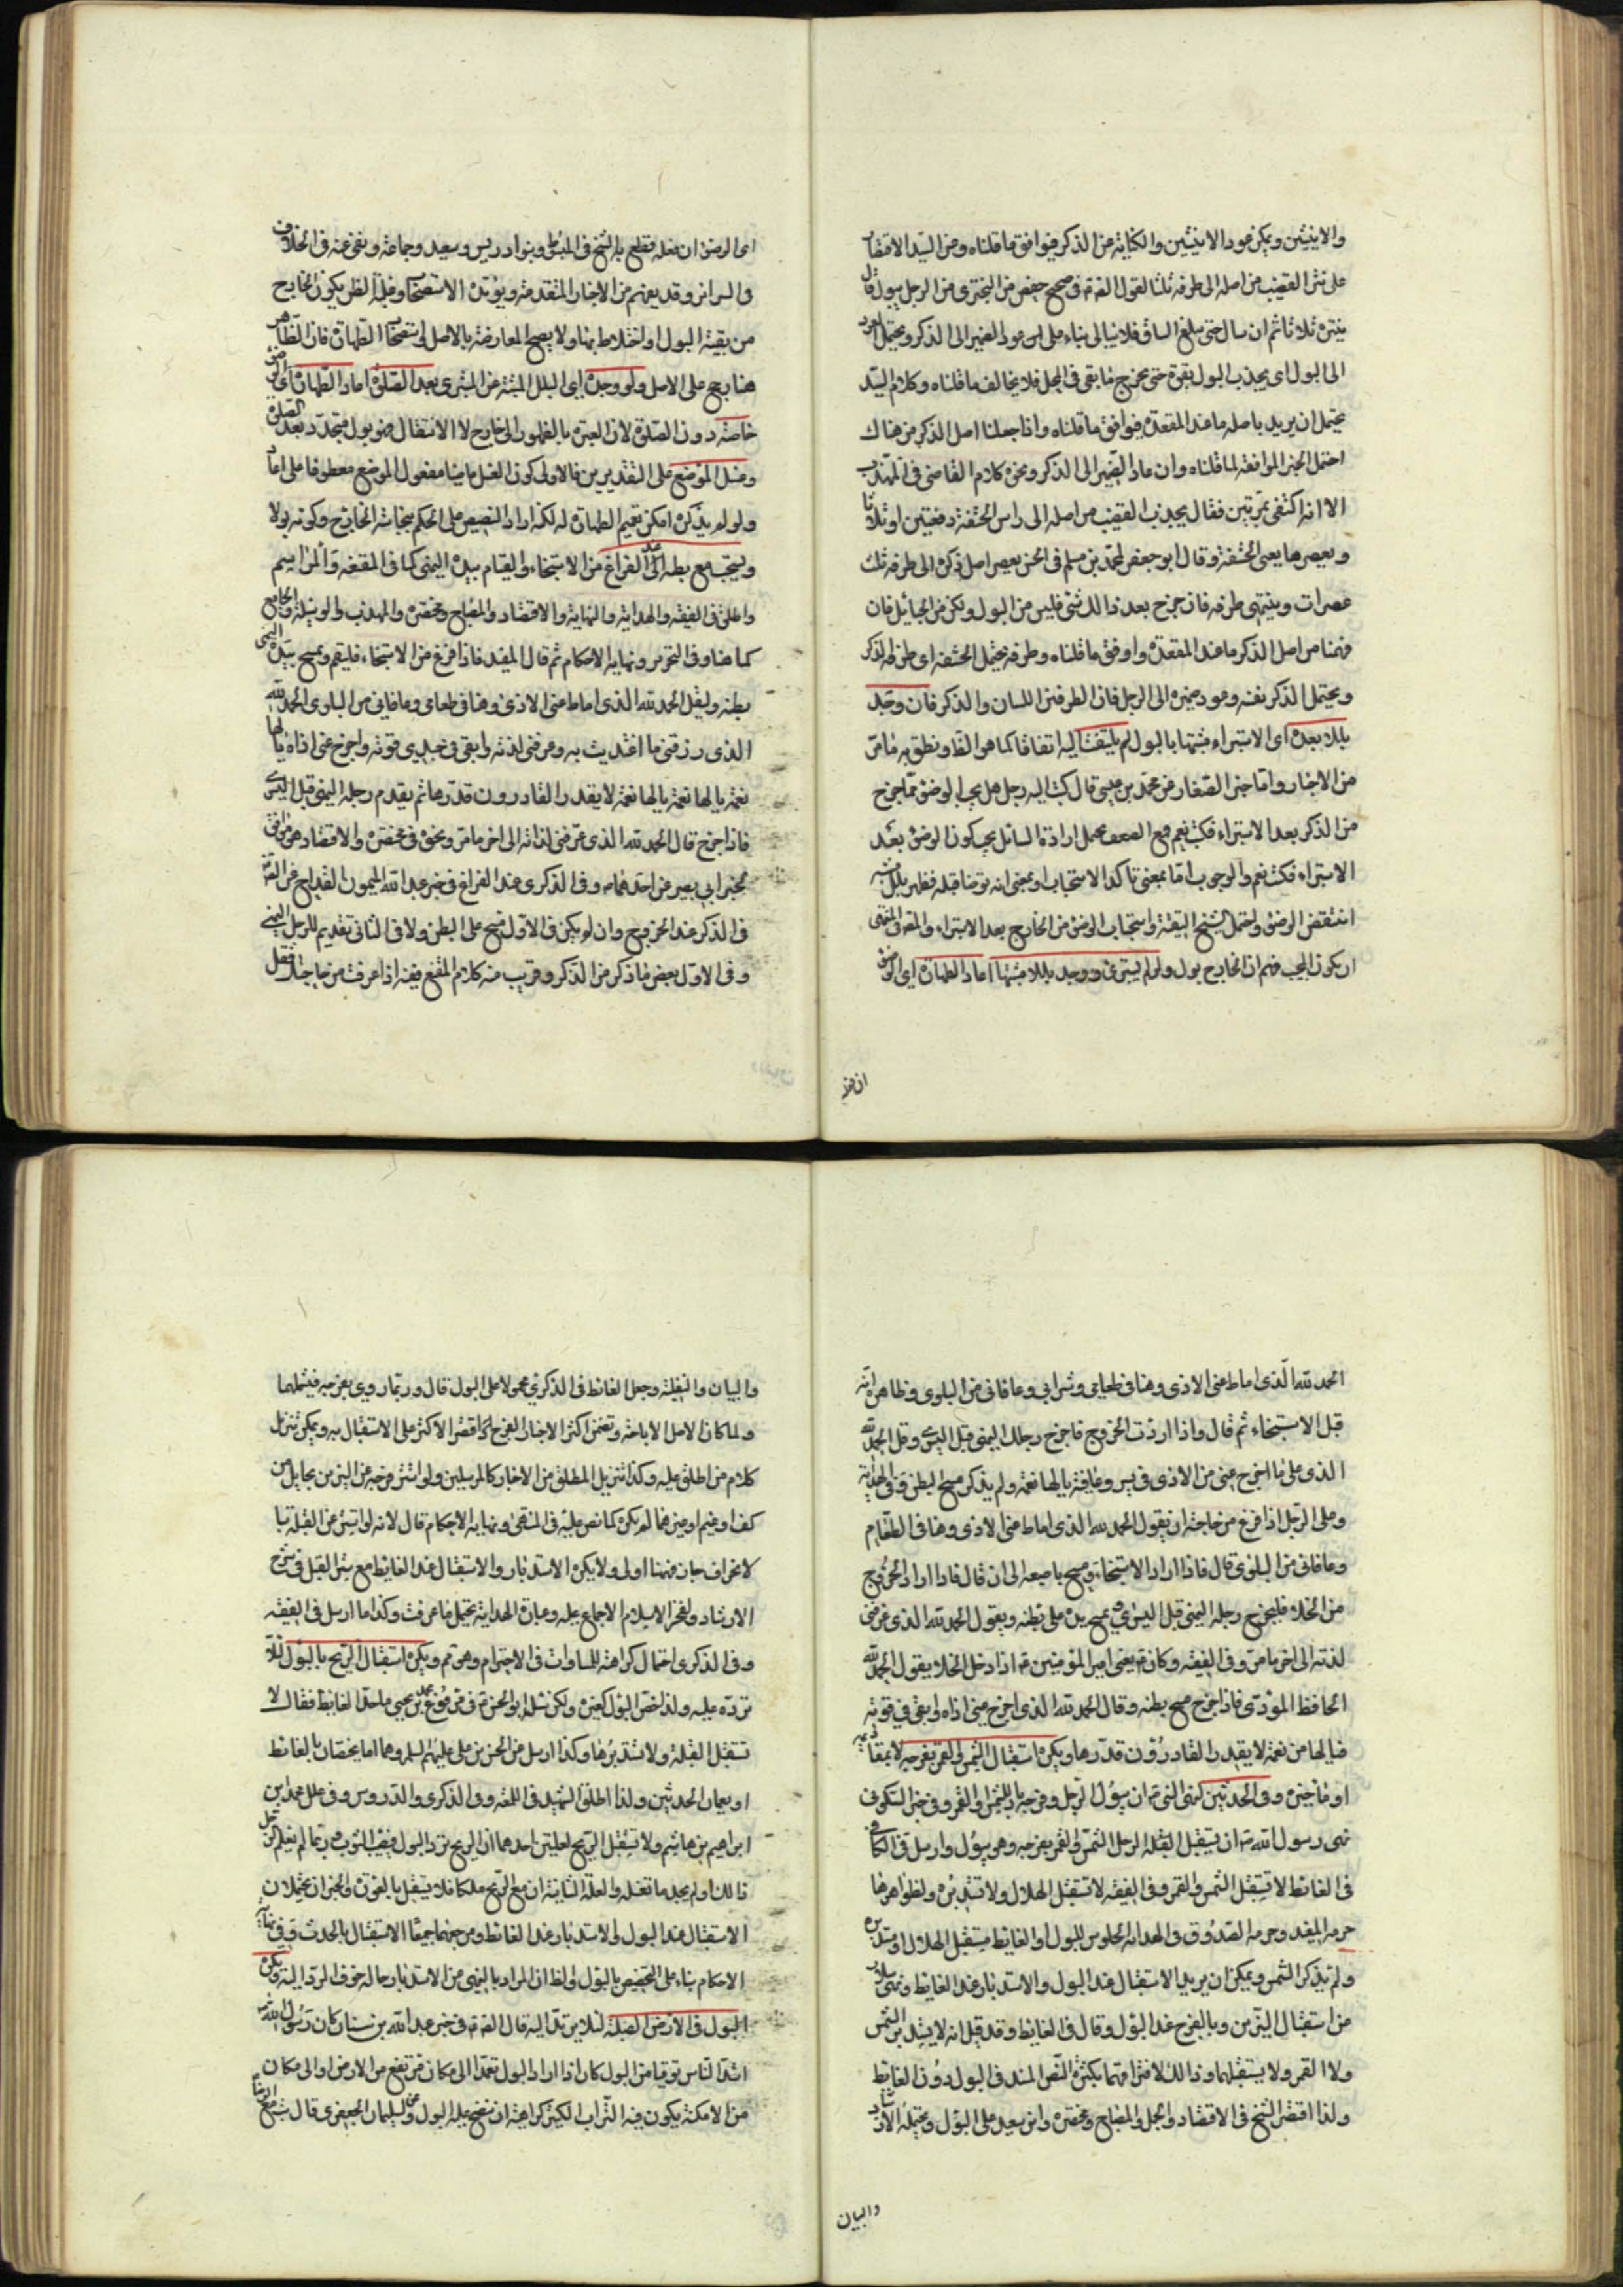 والانثيين ويمكن عود الانثيين والكناية من الذكر فيوافق ما قلناه ومن السيد الاقتصار
على نتر القضيب من اصله الى طرفه ثلثا لقول الص في صحيح حفص من البختري من الرجل يبول قال
ينتره ثلاثا ثم ان سال حتى يبلغ الساق فلا يبالي بناء على عود الضمير الى الذكر ويحتمل العود
الى البول اى يجذب البول بقوة حتى يخرج ما بقى في المحل فلا يخالف ما قلناه وكلام السيد
يحتمل ان يريد باصله ما عند المقعدة فيوافق ما قلناه واذا جعلنا اصل الذكر من هناك
احتمل الخبر الموافقة لما قلناه وان عاد الضمير الى الذكر ونحوه كلام القاضي في المهذب
الا انه اكتفى بمرتين فقال يجذب القضيب من اصله الى راس الحشفة دفعتين او ثلاثا
ويعصرها يعنى الحشفة وقال ابو جعفر لمحمد بن مسلم في الحسن يعصر اصل ذكره الى طرفه ثلث
عصرات وينتر طرفه فان خرج بعد ذالك شئ فليس من البول ولكن من الحبائل فان
فهمنا من اصل الذكر ما عند المقعدة وافق ما قلناه وطرفه يحتمل الحشفة اى طرف الذكر
ويحتمل الذكر نفسه وعود ضميره الى الرجل فان الطرفين اللسان والذكر فان وجد
بللا بعده اى الاستبراء مشتبها بالبول لم يلتفت اليه اتفاقا كما هو الظ ونطق به ما مر
من الاخبار واما خبر الصفار من محمد بن عيسى قال كتب اليه رجل هل يجب الوضوء مما خرج
من الذكر بعد الاستبراء فكتب نعم فمع الضعف يحمل ارادة السائل يجب كون الوضوء بعد
الاستبراء فكتب نعم والوجوب اما بمعنى تاكد الاستحباب او بمعنى انه توضأ قبله فظهر بلل مشتبه
انتقض الوضوء واحتمل الشيخ التقية واستحباب الوضوء من الخارج بعد الاستبراء والمعتبر المنتهى
ان يكون المجيب فهم ان الخارج بول ولو لم يستبرئ ووجد بللا مشتبها اعاد الطهارة اى الوضوء
ان فعله
اى الوضوء ان فعله قطع به الشيخ في المبسوط وبنو ادريس وسعيد وجماعة ونفى عنه في الخلاف
في السرائر وقد يفهم من الاخبار المتقدمة ويؤيده الاستصحاب وغلبة الظن بكون الخارج
من بقية البول او اختلاط بها ولا يصح المعارضة بالاصل واستصحاب الطهارة فان الظاهر
هنا رجح على الاصل ولو وجده اى البلل المشتبه غير المستبرى بعد الصلوة اعاد الطهارة اى الوضوء
خاصة دون الصلوة لان العبرة بالظهور الى خارج لا الانتقال فهو بول متجدد بعد الصلوة
وغسل الموضع على التقديرين فالاولى كون الغسل ماضيا مفعول الموضع معطوفا على اعاد
ولو لم يذكره امكن تعميم الطهارة له لكنه اراد التنصيص على الحكم بنجاسة الخارج وكونه بولا
ويستحب مسح بطنه عند الفراغ من الاستنجاء والقيام بيده اليمنى كما في المقنعة والمراسم
واعلى في الفقيه والهداية والنهاية والاقتصاد والمصباح ومختصره والمهذب والوسيلة والجامع
كما هنا وفي التحرير ونهاية الاحكام ثم قال المفيد فاذا فرغ من الاستنجاء فليقم ويمسح بيده اليمنى
بطنه وليقل الحمد لله الذى اماط عنى الاذى وهنأني طعامى وعافاني من البلوى الحمد لله
الذى رزقنى ما اغتذيت به وعرفنى لذته وابقى في جسدي قوته واخرج عنى اذاه يا لها
نعمة يا لها نعمة يا لها نعمة لا يقدر القادرون قدرها ثم يقدم رجله اليمنى قبل اليسرى
فاذا خرج قال الحمد لله الذى عرفنى لذاته الى اخر ما مر ونحوه في مختصره والاقتصاد موافق
لخبر ابى بصير عن احدهما وفي الذكرى عند الفراغ في خبر عبد الله بن الميمون القداح عن الص
في الذكر عند الخروج وان لم يكن في الاول مسح على البطن ولا في الثاني تقديم للرجل اليمنى
وفي الاول بعض ما ذكر من الذكر وقريب منه كلام المقنع ففيه اذا فرغت من حاجتك فقل
الحمد لله الذى اماط عنى الاذى وهنأنى طعامى وشرابى وعافانى من البلوى وظاهره انه
قبل الاستنجاء ثم قال واذا اردت الخروج فاخرج رجلك اليمنى قبل اليسرى وقل الحمد لله
الذى على ما اخرج عنى من الاذى في يسر وعافية يا لها نعمة ولم يذكر مسح البطن وفي الهداية
وعلى الرجل اذا فرغ من حاجته ان يقول الحمد لله الذى اماط عنى الاذى وهنأني الطعام
وعافانى من البلوى قال فاذا اراد الاستنجاء مسح باصبعه الى ان قال فاذا اراد الخروج
من الخلاء فليخرج رجله اليمنى قبل اليسرى ويمسح يده على بطنه ويقول الحمد لله الذى عرفنى
لذته الى اخر ما مر وفي الفقيه وكان ع يعنى امير المؤمنين ع اذا دخل الخلا يقول الحمد لله
الحافظ المؤدى فاذا خرج مسح بطنه وقال الحمد لله الذى اخرج عنى اذاه وابقى في قوته
فيا لها من نعمة لا يقدر القادرون قدرها ويكره استقبال الشمس والقمر بفرجه لا بمقاديمه
او مآخيره وفي الحدثين لنهى النبى ان يبول الرجل وفرجه باد للشمس والقمر وفي خبر السكوني
نهى رسول الله ص ان يستقبل القبلة الرجل الشمس والقمر بفرجه وهو يبول وارسل في الكافي
في الغائط لا تستقبل الشمس والقمر وفي الفقيه لا تستقبل الهلال ولا تستدبره ولظواهرها
حرمه المفيد وحرمه الصدوق في الهداية الجلوس للبول او الغائط مستقبل الهلال او مستدبره
ولم يذكر الشمس ويمكن ان يريد الاستقبال عند البول والاستدبار عند الغائط ونهى سلار
من استقبال النيرين وبالفرج عند البول وقال في الغائط وقد قيل انه لا يستدبر الشمس
ولا القمر ولا يستقبلهما وذالك لافتراقهما بكثرة النص المسند في البول دون الغائط
ولذا اقتصر الشيخ في الاقتصاد والجمل والمصباح ومختصره وابن سعيد على البول ويحتمله الارشاد
والبيان
والبيان والنفلية وجعل الغائط في الذكرى محمولا على البول قال وربما روى بفرجه فيشملهما
ولما كان الاصل الاباحة وتضمن اكثر الاخبار الفرج اقتصر الاكثر على الاستقبال به ويمكن تنزيل
كلام من اطلق عليه وكذا تنزيل المطلق من الاخبار كالمرسلين ولو استتر فرجه عن النيرين بحايل من
كف او غيم او غيرهما لم يكره كما نص عليه في المنتهى ونهاية الاحكام قال لانه لو استتر عن القبلة
لانحراف جاز فهنا اولى ولا يكره الاستدبار والاستقبال عند الغائط مع ستر القبل في شرح
الارشاد لفخر الاسلام الاجماع عليه وعبارة الهداية يحتمل ما عرفت وكذا ما ارسل في الفقيه
وفي الذكرى احتمال كراهته للمساوات في الاحترام وهو ثم ويكره استقبال الريح بالبول لئلا
ترده عليه ولذا خص البول كغيره ولكن سئل ابو الحسن ع في مرفوع محمد بن يحيى ما حد الغايط فقال لا
تستقبل القبلة ولا تستدبرها وكذا ارسل من الحسن بن على عليهم السلم وهما اما يخصان بالغائط
او يعمان الحدثين ولذا اطلق الشهيد في اللمعة وفي الذكرى والدروس وفي علل محمد بن
ابراهيم بن هاشم ولا تستقبل الريح لعلتين احدهما ان الريح ترد البول فيصيب الثوب وربما لم يعلم الرجل
ذالك او لم يجد ما تغسله والعلة الثانية ان مع الريح ملكا فلا يستقبل بالعورة والخبران يحتملان
الاستقبال عند البول والاستدبار عند الغائط ومرجعهما جميعا الاستقبال بالحدث وفي نهاية
الاحكام بناء على التخصيص بالبول والظ ان المراد بالنهى من الاستدبار حالة خوف الرد اليه ويكره
البول في الارض الصلبة لئلا يرتد اليه قال الص في خبر عبد الله بن سنان كان رسول الله ص
اشد الناس توقيا من البول كان اذا اراد البول تعمد الى مكان مرتفع من الارض او الى مكان
من الامكنة يكون فيه التراب الكثير كراهية ان ينضح عليه البول وعن سليمان الجعفرى قال بت مع الرضا